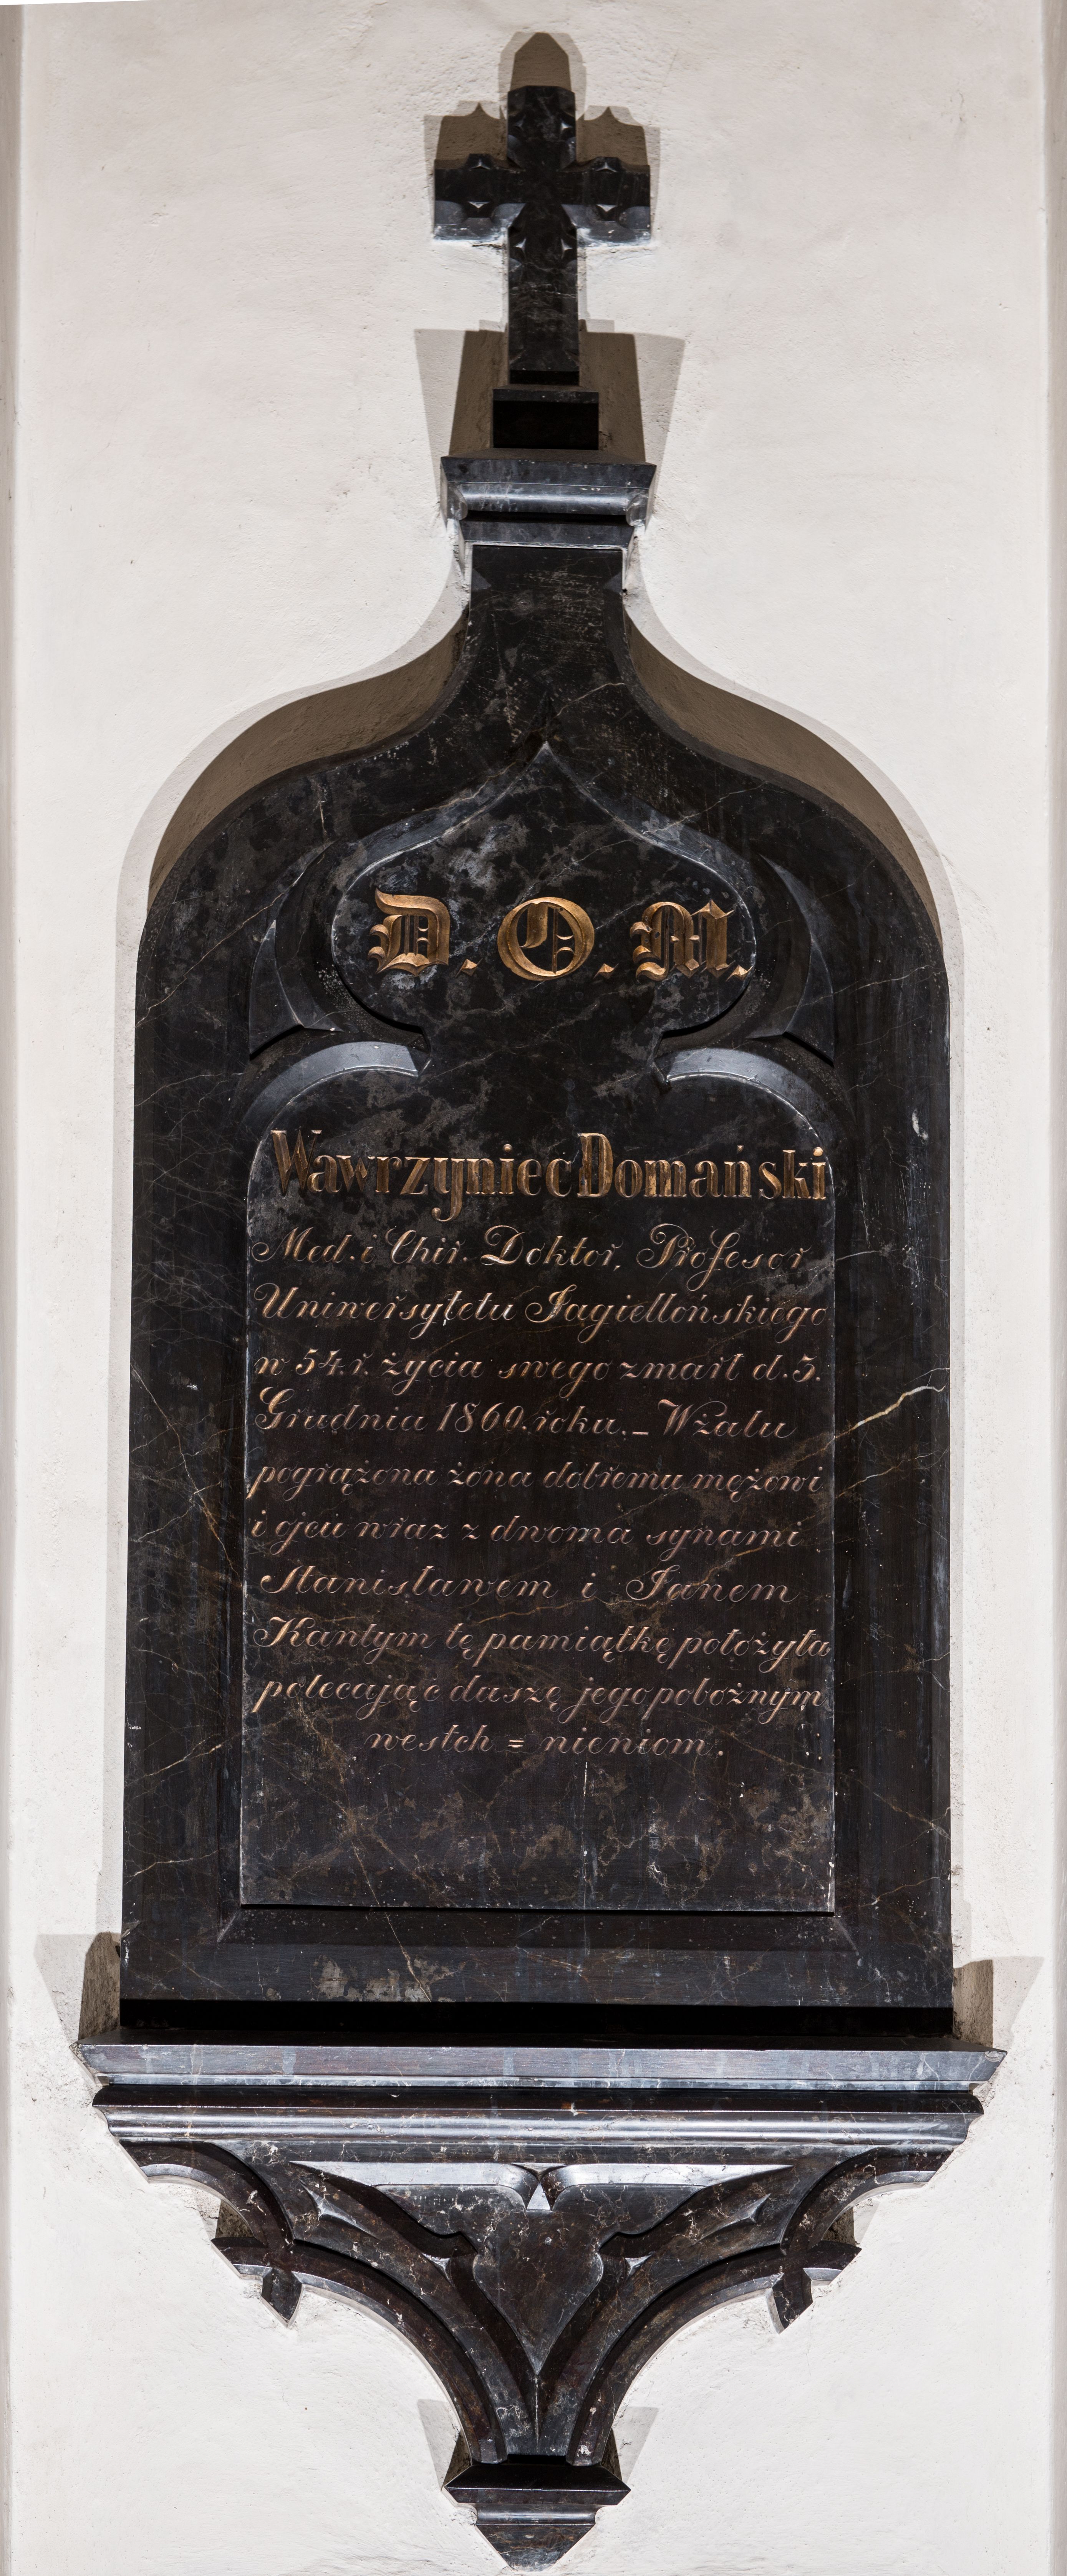 D. O. M.
Wawrzyniec Domański
Med. i Chir. Doktor, Profesor
Uniwersytetu Jagiellońskiego
w 54. r. życia swego zmarł d. 3.
Grudnia 1860. roku. _ W żalu
pogrążona żona dobremu mężowi
i ojcu wraz z dwoma synami
Stanisławem i Janem
Kantym tę pamiątkę położyła
polecając duszę jego pobożnym
westch = nieniom.